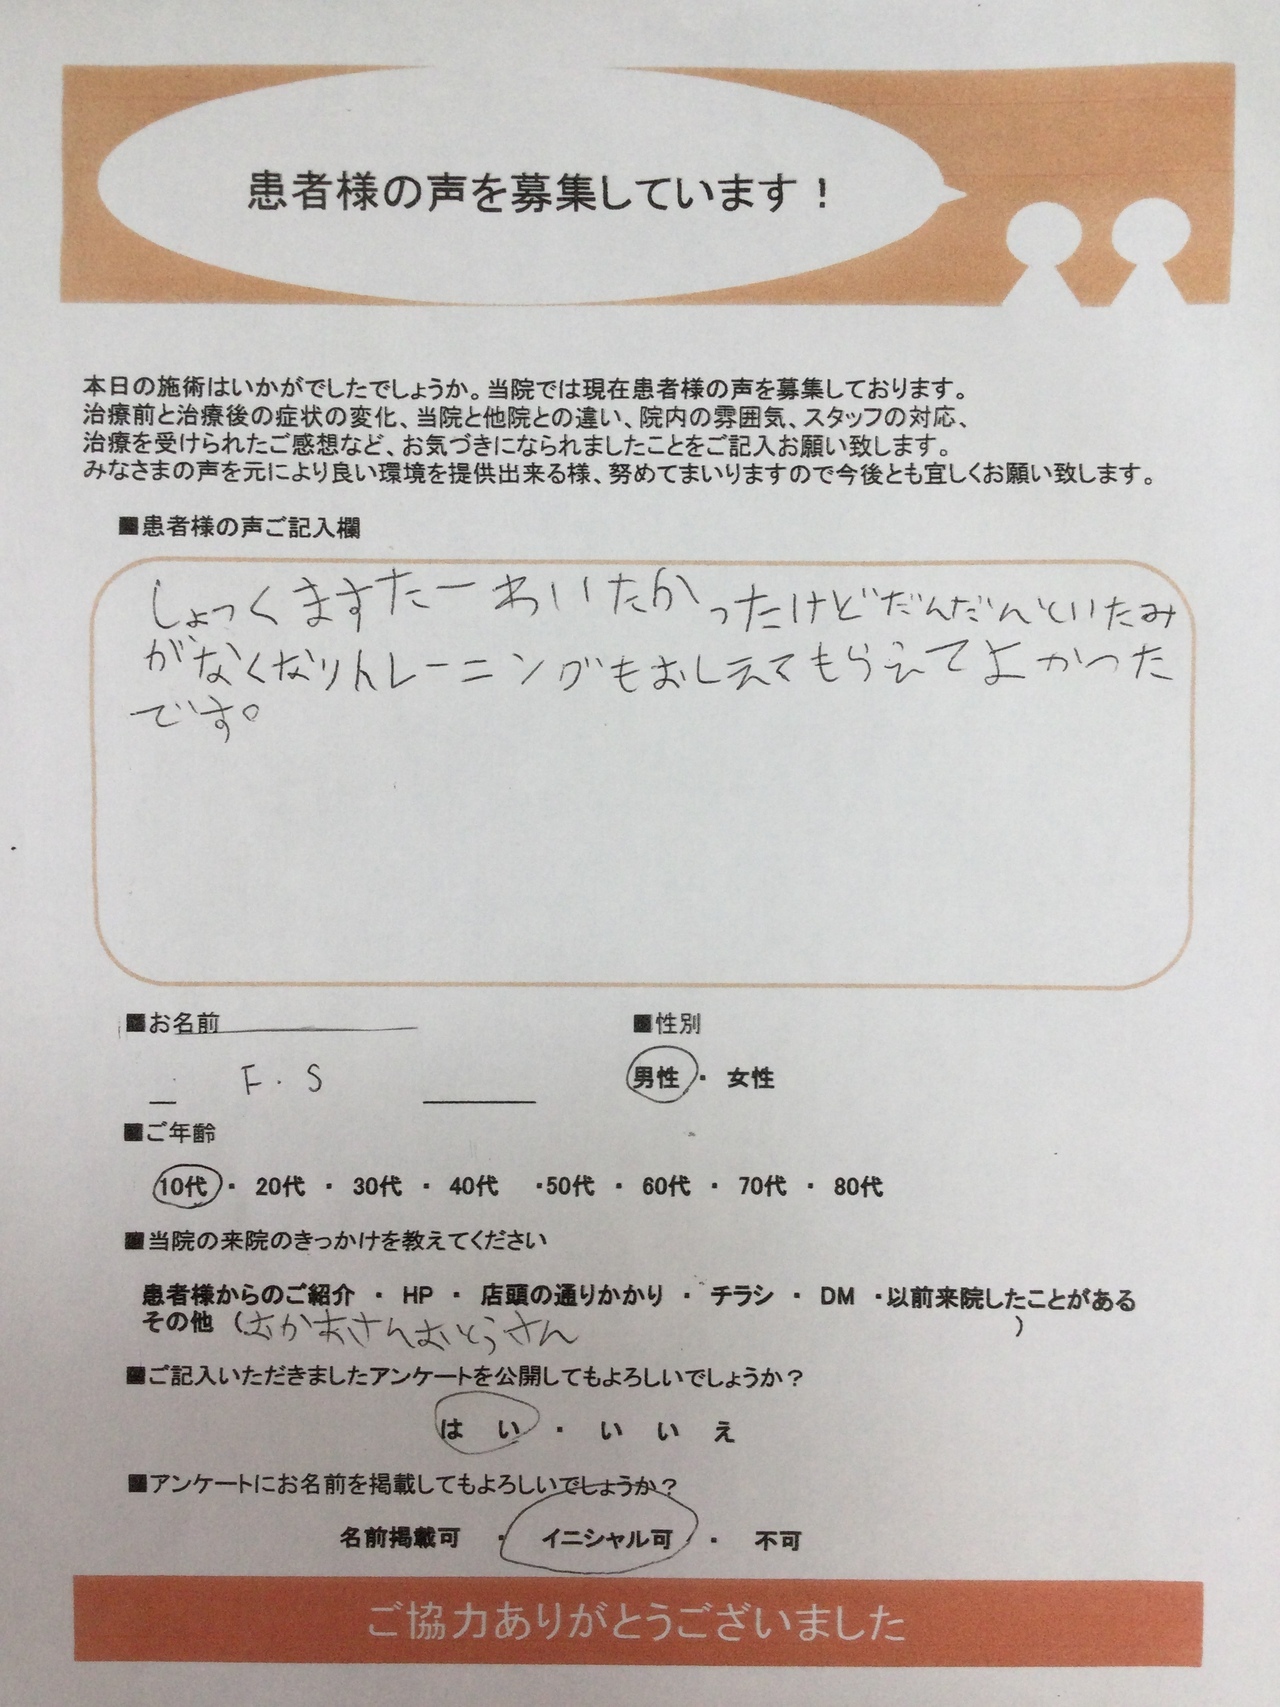 患者様の声を募集しています！
本日の施術はいかがでしたでしょうか。当院では現在患者様の声を募集しております。
治療前と治療後の症状の変化、当院と他院との違い、院内の雰囲気、スタッフの対応、
治療を受けられたご感想など、お気づきになられましたことをご記入お願い致します。
みなさまの声を元により良い環境を提供出来る様、努めてまいりますので今後とも宜しくお願い致します。
■患者様の声ご記入欄
しょっくますたーわいたかったけどだんだんといたみ
がなくなりトレーニングもおしえてもらえてよかった
です。
■お名前
F.S
■性別
男性・女性
■ご年齢
10代・20代・30代・40代・50代・60代・70代・80代
■当院の来院のきっかけを教えてください
患者様からのご紹介・HP・店頭の通りかかり・チラシ・DM・以前来院したことがある
その他（おかあさんおとうさん）
■ご記入いただきましたアンケートを公開してもよろしいでしょうか？
はい・いいえ
■アンケートにお名前を掲載してもよろしいでしょうか？
名前掲載可・イニシャル可・不可
ご協力ありがとうございました